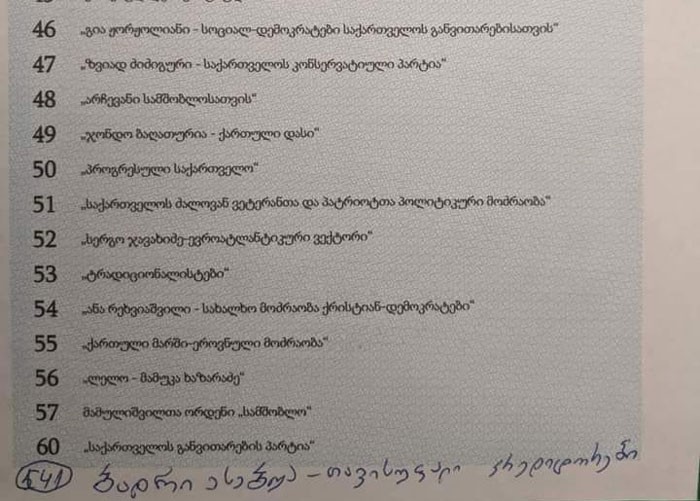 46 „გია ჟორჟოლიანი - სოციალ-დემოკრატები საქართველოს განვითარებისათვის“
47 „ზვიად ძიძიგური - საქართველოს კონსერვატიული პარტია“
48 „არჩევანი სამშობლოსათვის“
49 „ჯონდო ბაღათურია - ქართული დასი“
50 „პროგრესული საქართველო“
51 „საქართველოს ძალოვან ვეტერანთა და პატრიოტთა პოლიტიკური მოძრაობა“
52 „სერგო ჯავახიძე-ევროატლანტიკური ვექტორი“
53 „ტრადიციონალისტები“
54 „ანა რეხვიაშვილი - სახალხო მოძრაობა ქრისტიან-დემოკრატები“
55 „ქართული მარში-ეროვნული მოძრაობა“
56 „ლელო - მამუკა ხაზარაძე“
57 მამულიშვილთა ორდენი „სამშობლო“
60 „საქართველოს განვითარების პარტია“
541 ბადრი ესებუა - თავისუფალი კრედიტორები